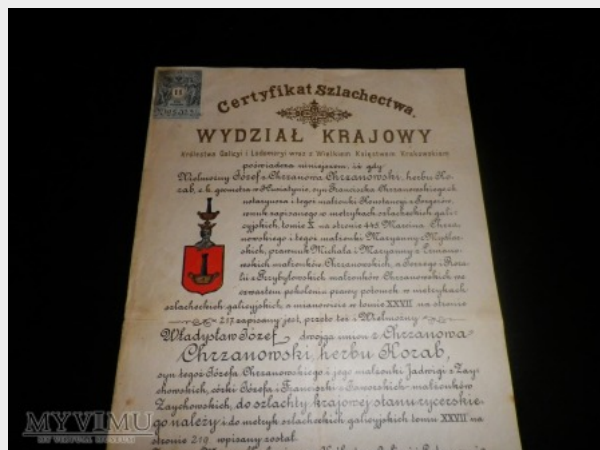 Certyfikat Szlachectwa.
WYDZIAŁ KRAJOWY
Królestwa Galicyi i Lodomeryi wraz z Wielkiem Księstwem Krakowskiem
poświadcza niniejszem, iż gdy
Wielmożny Józef z Chrzanowa Chrzanowski, herbu Ko-
rab, c.k. geometra w Husiatynie, syn Franciszka Chrzanowskiego c.k.
notaryusza i tegoż małżonki Konstancyi z
wnuk zapisanego w metrykach szlacheckich galic-
cyjskich, tomie X na stronie 445 Marcina Chrza-
nowskiego i tegoż małżonki Maryanny z
skich, prawnuk Michała i Maryanny z
małżonków Chrzanowskich, a Jerzego i Roza-
lii z Przybyłowskich małżonków Chrzanowskich we
czwartem pokoleniu prawy potomek w metrykach
szlacheckich galicyjskich, a mianowicie w tomie XXVII na stronie
217 zapisany jest, przeto też i Wielmożny
Władysław Józef dwojga imion z Chrzanowa
Chrzanowski, herbu Korab,
syn tegoż Józefa Chrzanowskiego i jego małżonki Jadwigi z Zay-
chowskich, córki Józefa i Franciszki z Jaworskich małżonków
Zaychowskich, do szlachty krajowej stanu rycerskie-
go należy i do metryk szlacheckich galicyjskich tomu XXVII na
stronie 219 wpisany został.
MYVIMU
MY VIRTUAL MUSEUM